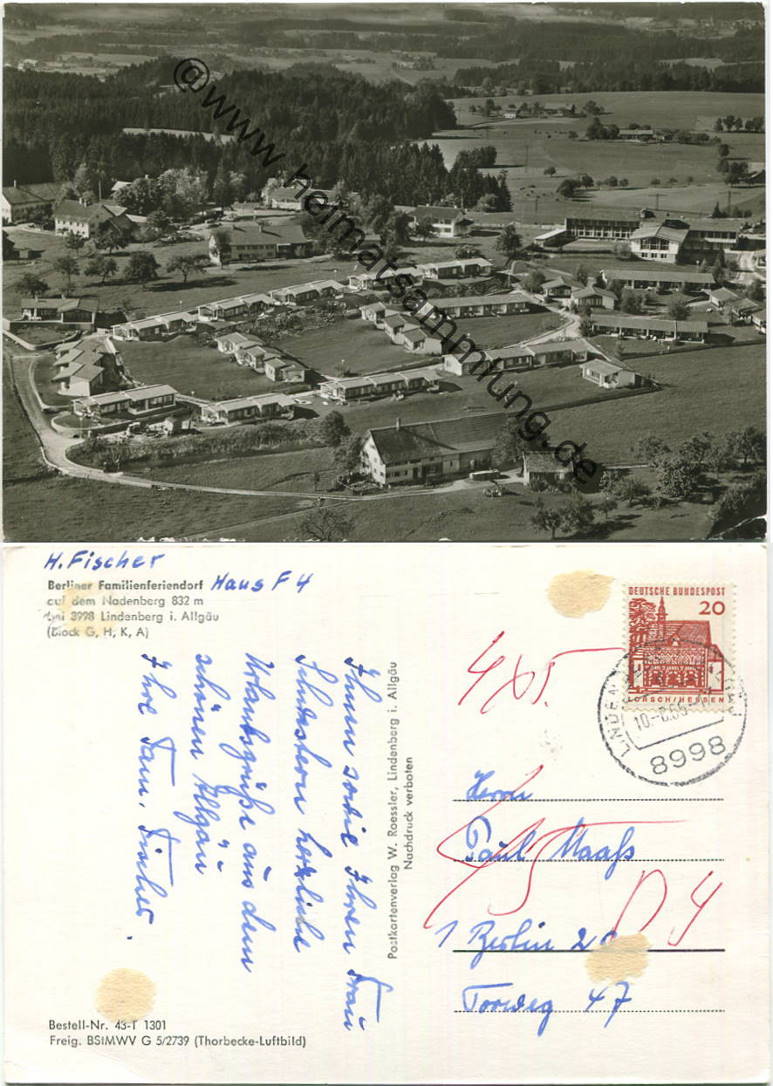 @www.heimatsammlung.de
H. Fischer
Berliner Familienferiendorf Haus F 4
auf dem Nadenberg 832 m
bei 8998 Lindenberg i. Allgäu
(Block G, H, K, A)
Ihnen sowie Ihren Frau
Schwestern herzliche
Urlaubsgrüße aus dem
schönen Allgäu
Ihre Fam. Fischer.
Bestell-Nr. 43-T 1301
Freig. BSIMWV G 5/2739 (Thorbecke-Luftbild)
Postkartenverlag W. Roessler, Lindenberg i. Allgäu
Nachdruck verboten
DEUTSCHE BUNDESPOST
20
LORSCH/HESSEN
8998
Herrn
Paul Maaß
1 Berlin
Torweg 47